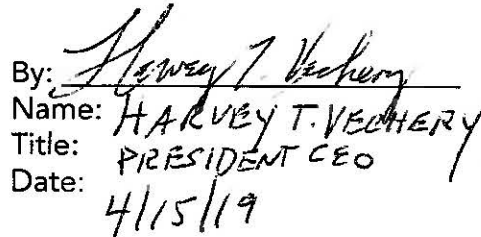 By: Harvey T. Vechery
Name: HARVEY T. VECHERY
Title: PRESIDENT CEO
Date: 4/15/19